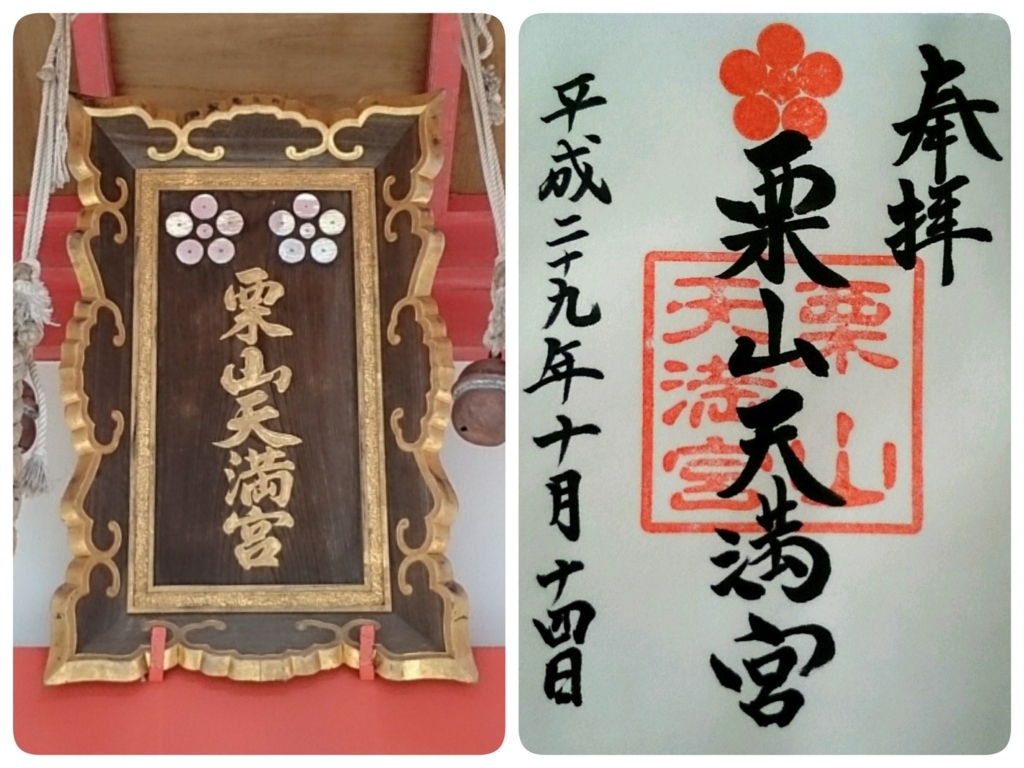 栗山天満宮
奉拝
栗山天満宮
栗山
天満宮
平成二十九年十月十四日